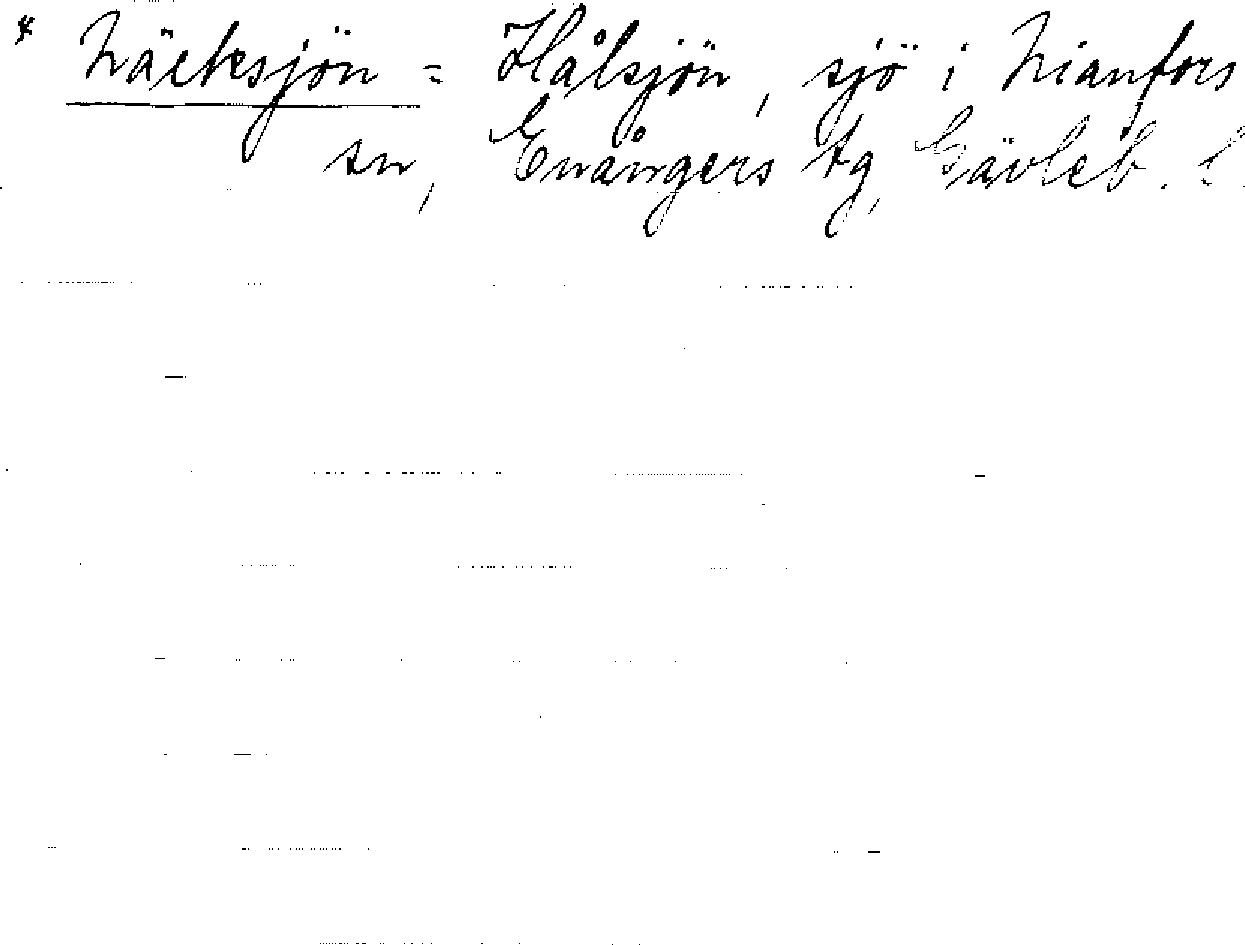 * Näcksjön = Hålsjön, sjö i Nianfors
sn, Enångers tg, Gävleb. l.